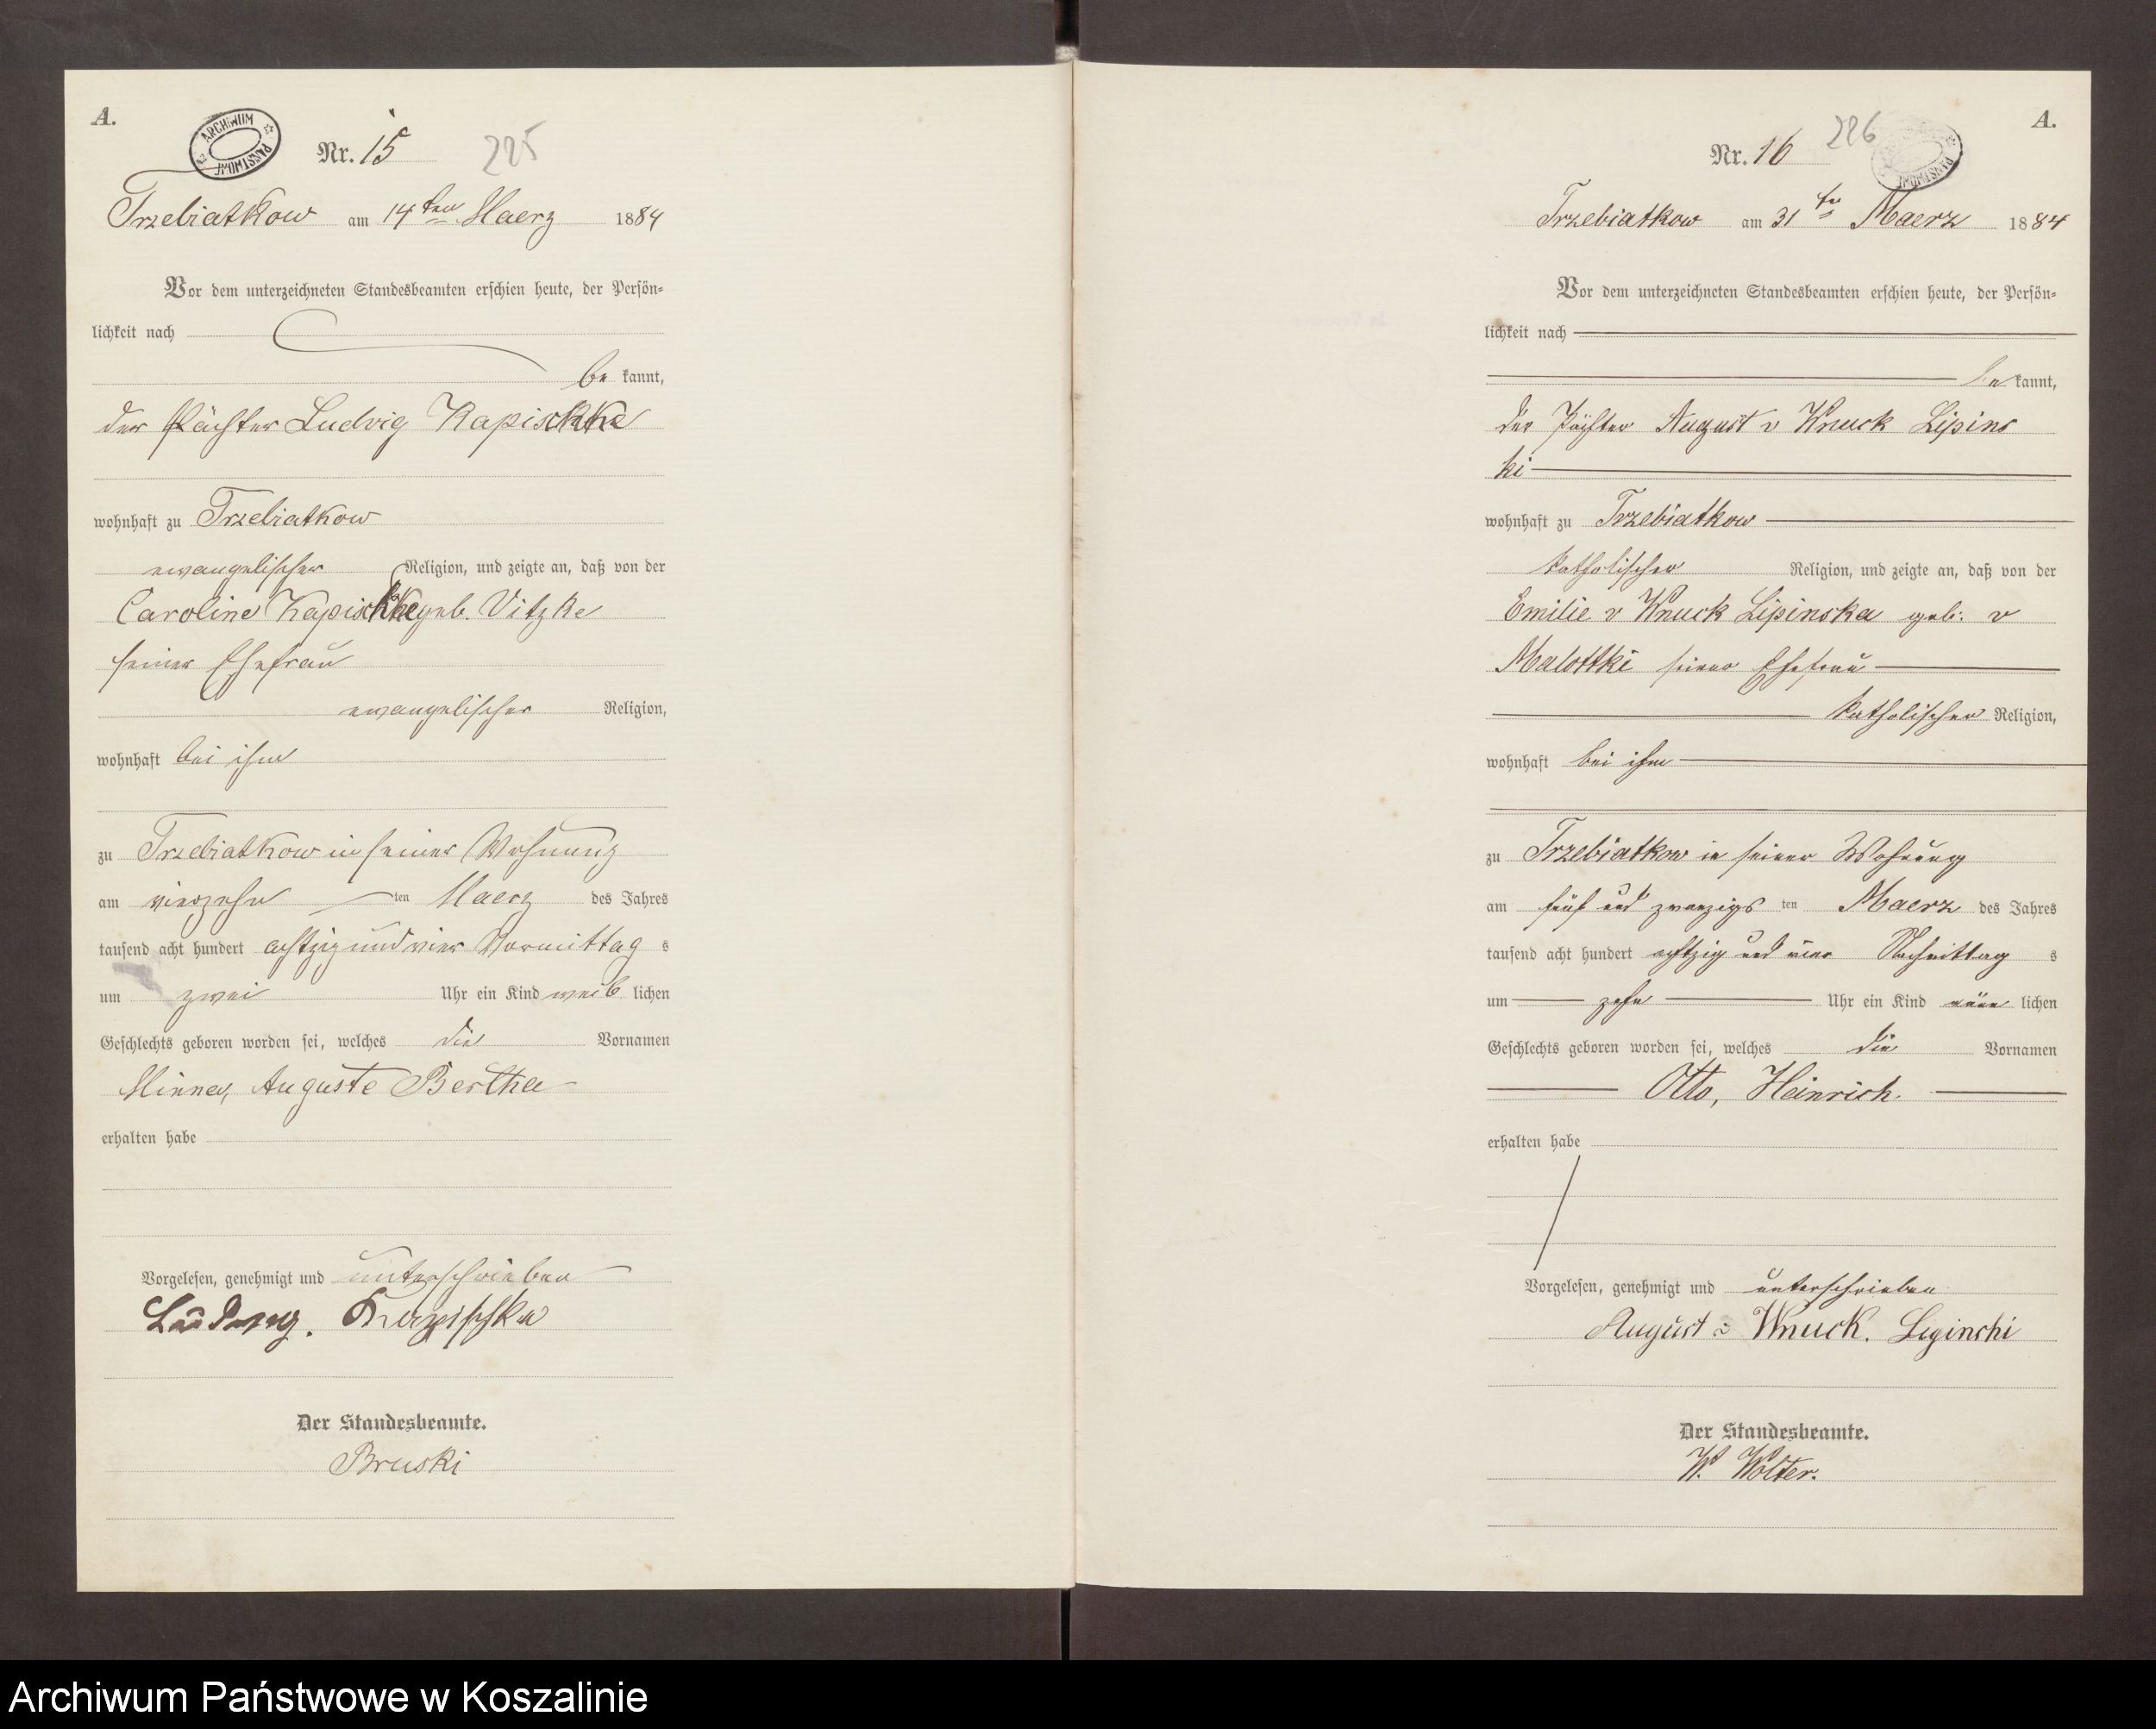 A.
ARCHIWUM
PAŃSTWOWE
Nr. 15
225
Trzebiatkow am 14ten Maerz 1884
Vor dem unterzeichneten Standesbeamten erschien heute, der Persön-
lichkeit nach
be kannt,
der Pächter Ludwig Kapischke
wohnhaft zu Trzebiatkow
evangelischer Religion, und zeigte an, daß von der
Caroline Kapischke geb. Vitzke
seiner Ehefrau
evangelischer Religion,
wohnhaft bei ihm
zu Trzebiatkow in seiner Wohnung
am vierzehn ten Maerz des Jahres
tausend acht hundert achtzig und vier Vormittag s
um zwei Uhr ein Kind weib lichen
Geschlechts geboren worden sei, welches die Vornamen
Minna, Auguste Bertha
erhalten habe
Vorgelesen, genehmigt und unterschrieben
Ludwig. Kapischke
Der Standesbeamte.
Bruski
A.
Nr. 16
226
Trzebiatkow am 31ten Maerz 1884
Vor dem unterzeichneten Standesbeamten erschien heute, der Persön-
lichkeit nach
be kannt,
der Pächter August v Wnuck Lipins
ki
wohnhaft zu Trzebiatkow
katholischer Religion, und zeigte an, daß von der
Emilie v Wnuck Lipinska geb. v
Malottki seiner Ehefrau
katholischer Religion,
wohnhaft bei ihm
zu Trzebiatkow in seiner Wohnung
am fünf und zwanzigs ten Maerz des Jahres
tausend acht hundert achtzig und vier Nachmittag s
um zehn Uhr ein Kind männ lichen
Geschlechts geboren worden sei, welches die Vornamen
Otto, Heinrich.
erhalten habe
Vorgelesen, genehmigt und unterschrieben
August v Wnuck. Lipinski
Der Standesbeamte.
W. Wolter.
Archiwum Państwowe w Koszalinie